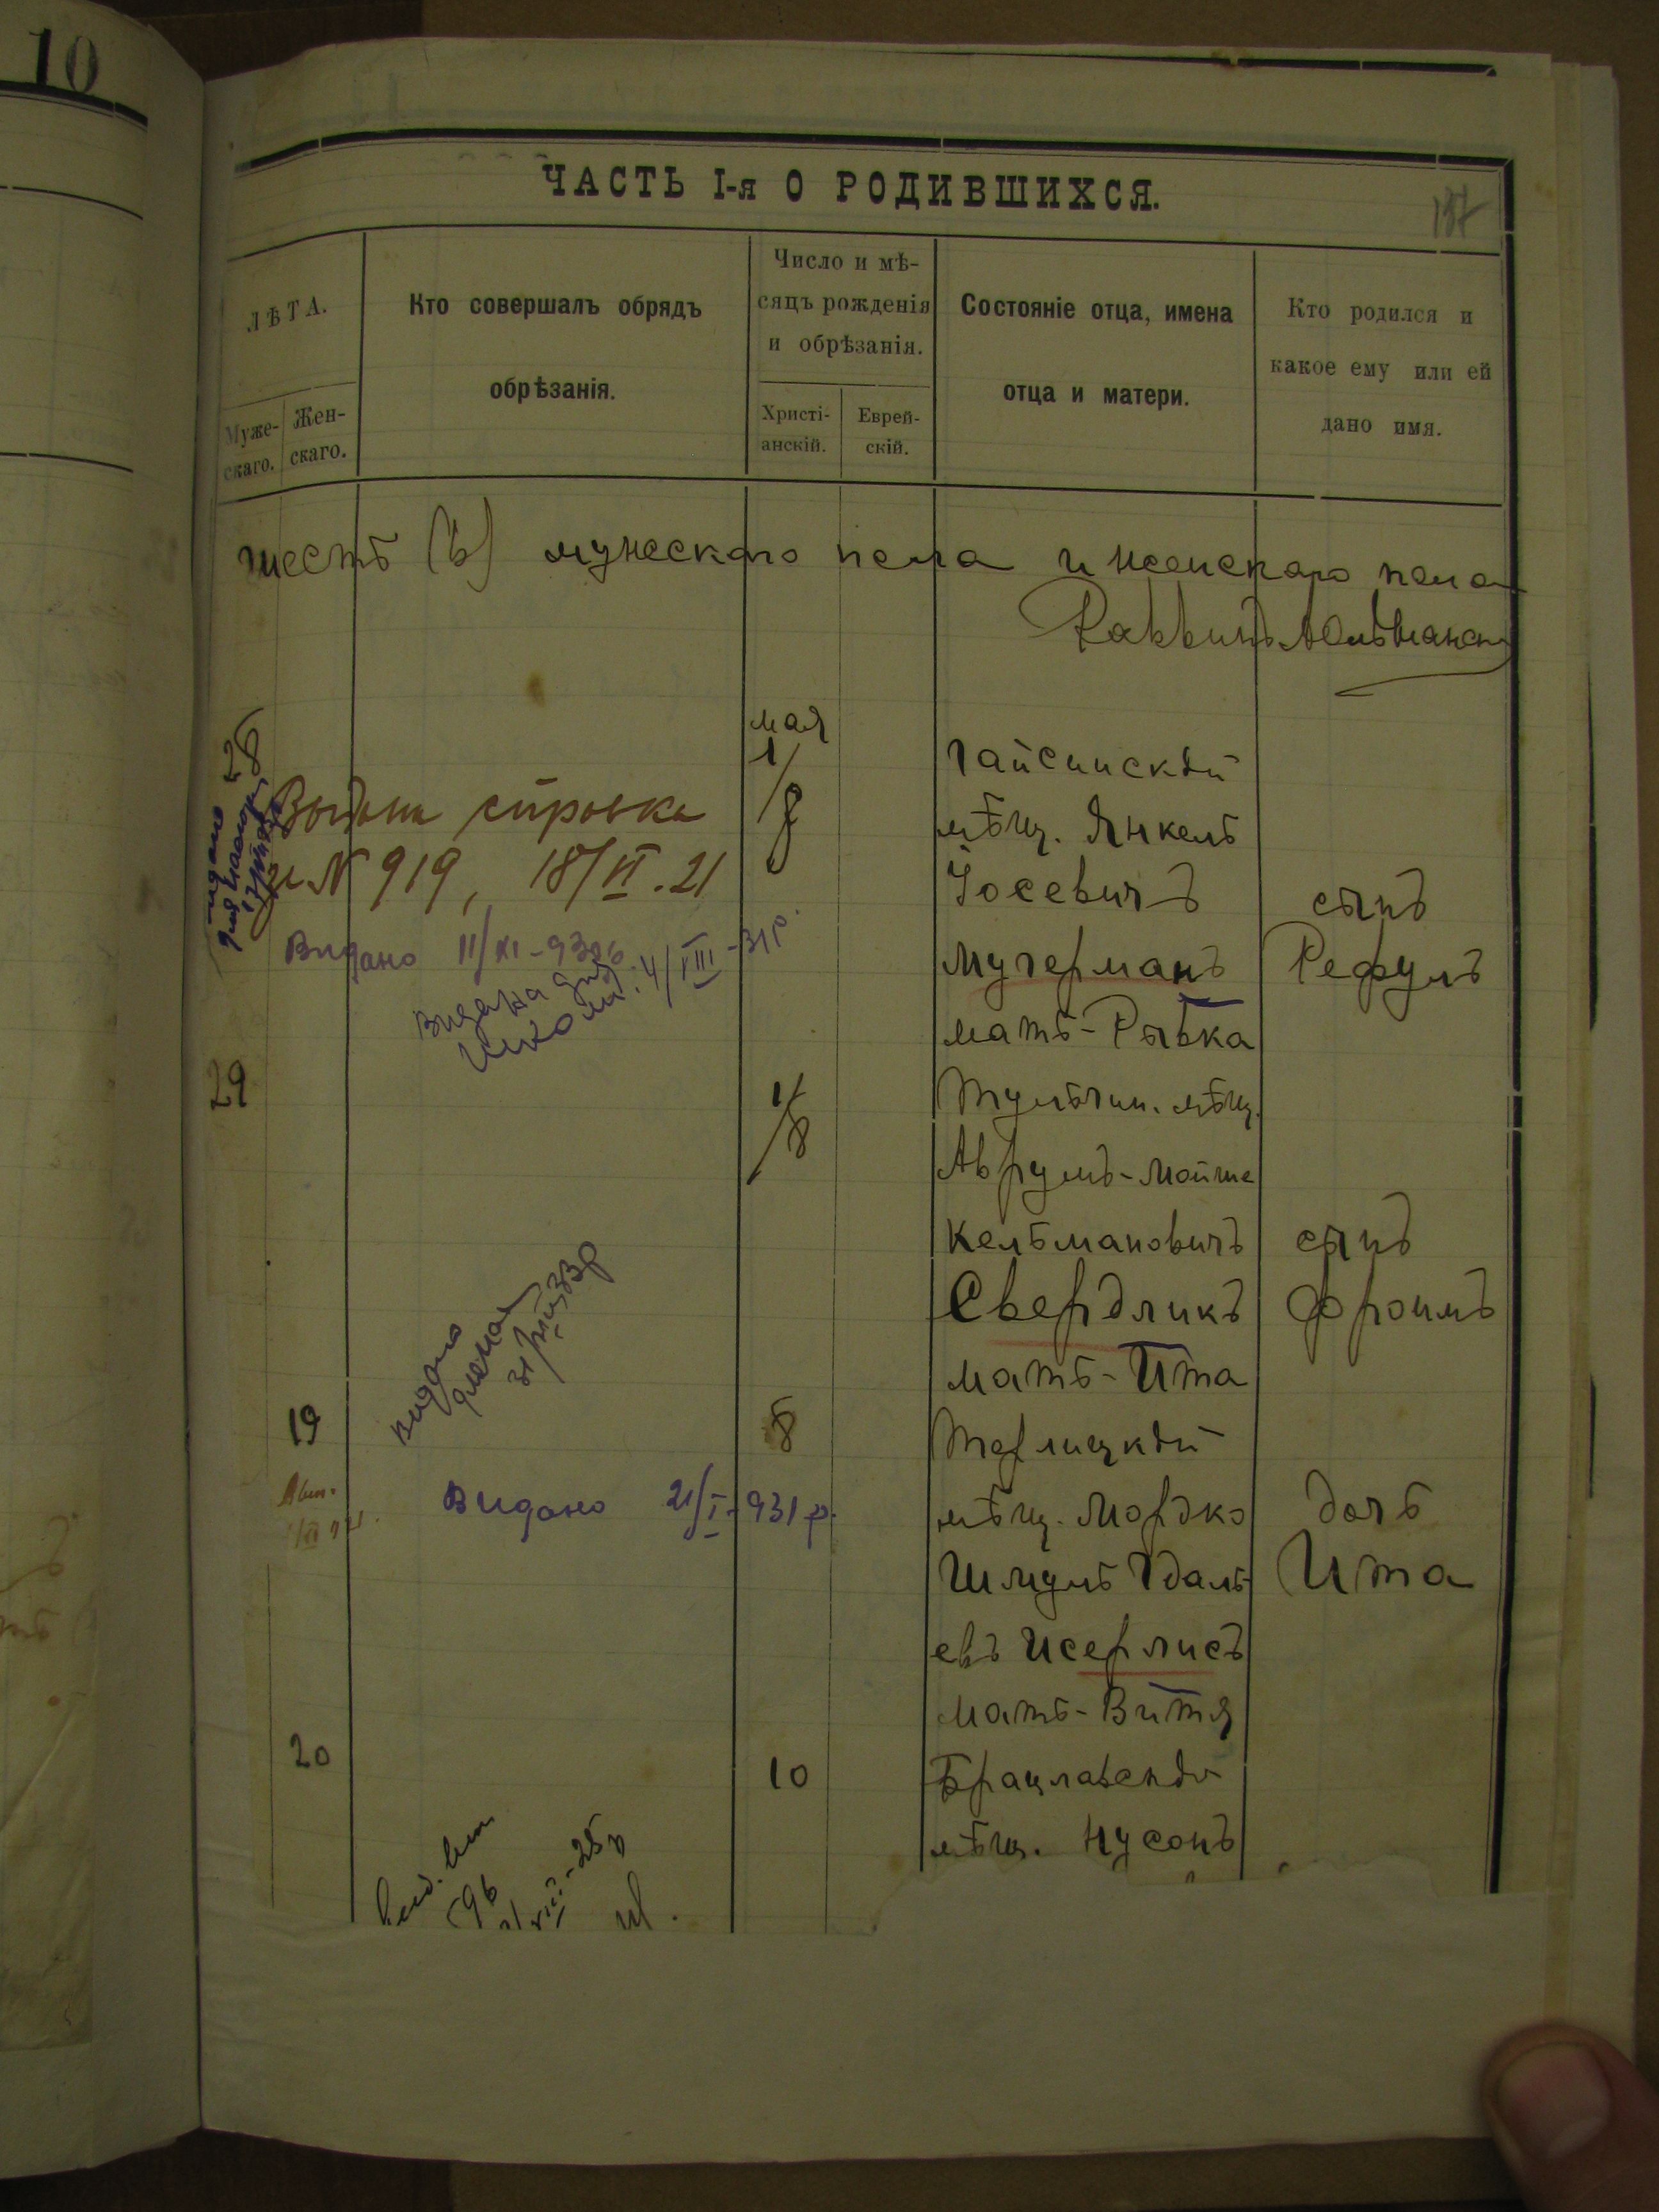 10
ЧАСТЬ I-я О РОДИВШИХСЯ.
137
ЛѢТА.
Муже-
скаго.
Жен-
скаго.
Кто совершалъ обрядъ
обрѣзанія.
Число и мѣ-
сяцъ рожденія
и обрѣзанія.
Христі-
анскій.
Еврей-
скій.
Состояніе отца, имена
отца и матери.
Кто родился и
какое ему или ей
дано имя.
шесть (6) мужескаго пола и женскаго пола
Раввинъ
28
мая
1/8
Гайсинскій
мѣщ. Янкель
Іосевичъ
Мучерманъ
мать-Рывка
сынъ
Рефулъ
справка
за № 919, 18/VI.21
Видано 11/XI-930
Видана для
школи. 4/VIII-31р.
29
1/8
Тульчин. мѣщ.
Аврумъ-Мойше
Кельмановичъ
Свердликъ
мать-Ита
сынъ
Фроимъ
Видано
19
8
Терлицкій
мѣщ. Мордко
Шмуль Гдаль-
евъ Исерлисъ
мать-Витя
дочь
Ита
Видано 21/I-931 р.
20
10
Брацлавскій
мѣщ. Нусонъ